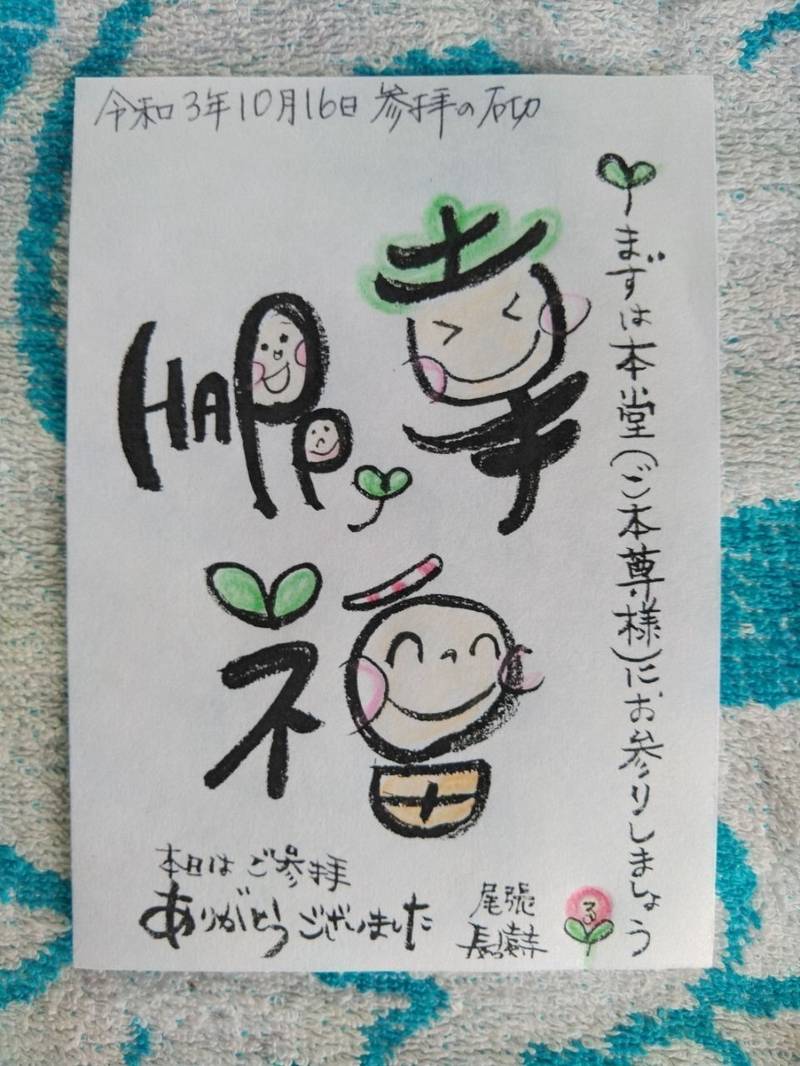 令和3年10月16日 参拝の砌
まずは本堂(ご本尊様)にお参りしましょう
幸
HAPPy
福
本日は ご参拝
ありがとうございました
尾張